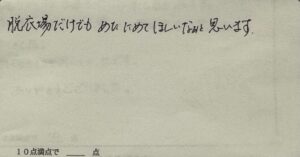 脱衣場だけでも めたにめてほしいなぁと思います
10点満点で ____ 点